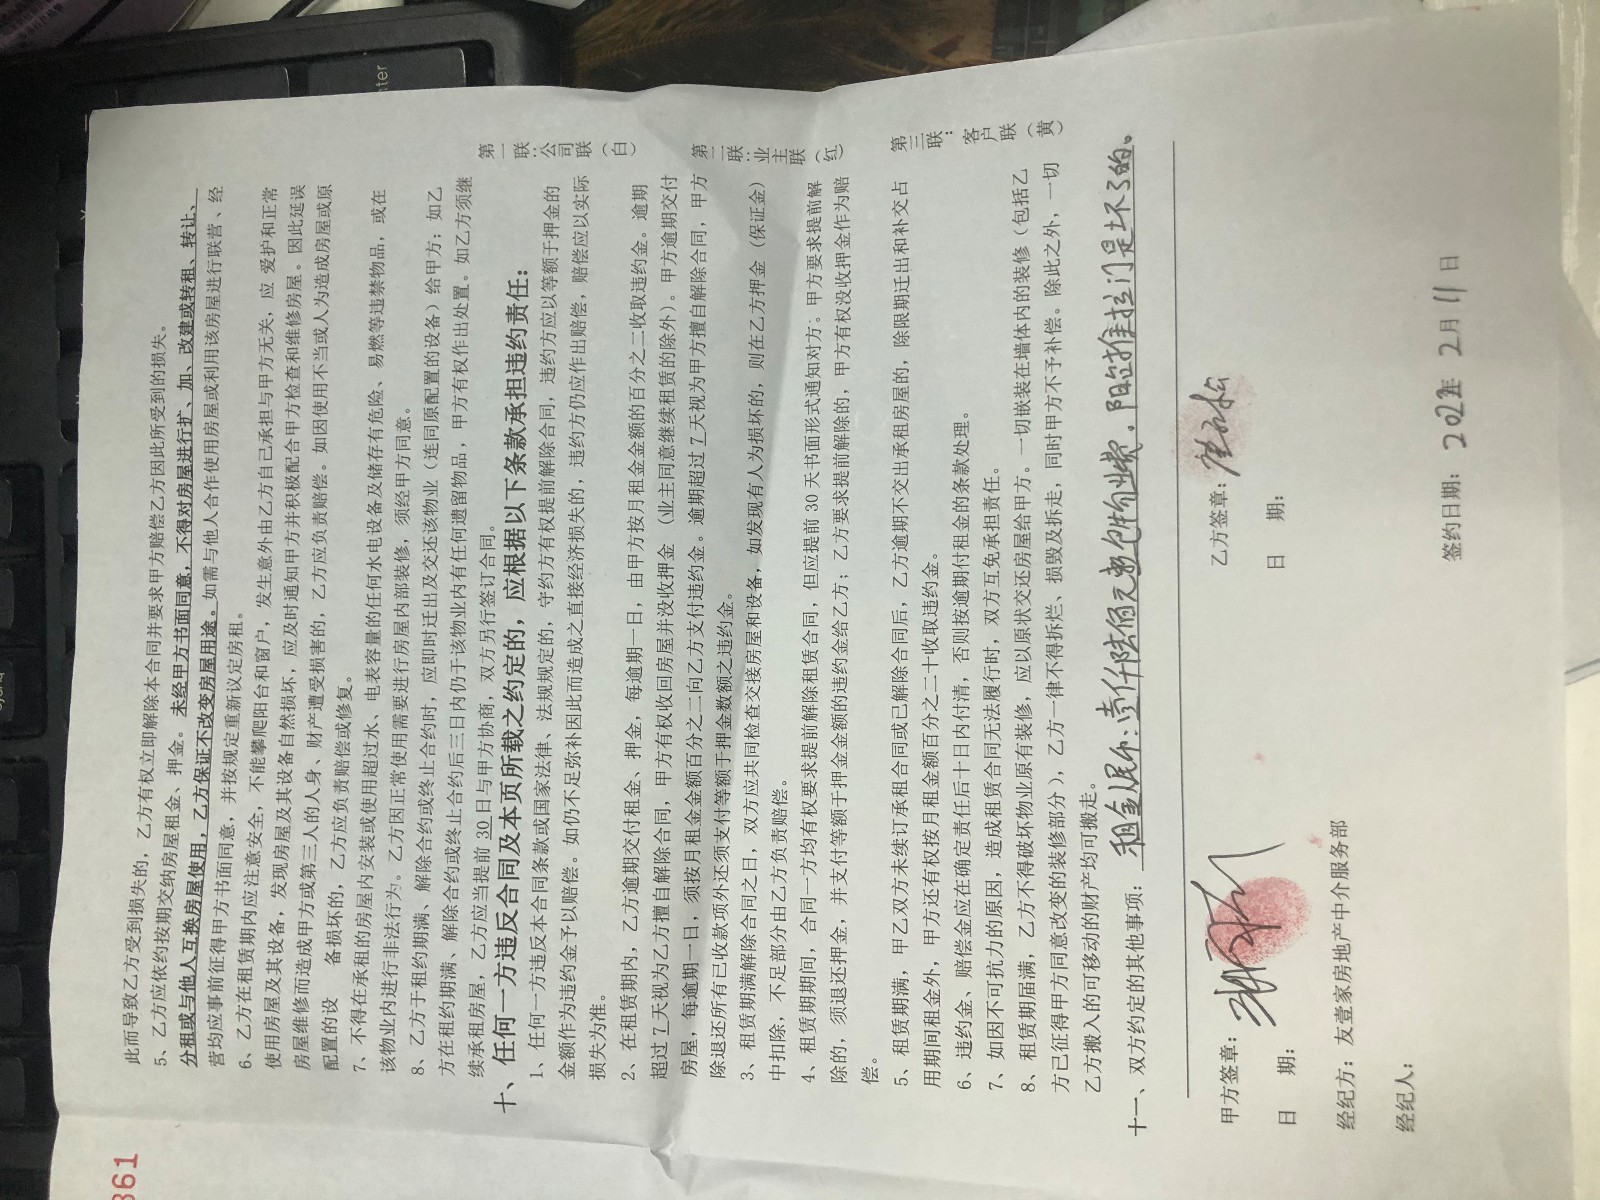 此而导致乙方受到损失的，乙方有权立即解除本合同并要求甲方赔偿乙方因此所受到的损失。
5、乙方应依约按期交纳房屋租金、押金。未经甲方书面同意，不得对房屋进行扩、加、改建或转租、转让、
分租或与他人互换房屋使用，乙方保证不改变房屋用途。如需与他人合作使用房屋或利用该房屋进行联营、经
营均应事前征得甲方书面同意，并按规定重新议定房租。
6、乙方在租赁期内应注意安全，不能攀爬阳台和窗户，发生意外由乙方自己承担与甲方无关，应 爱护和正常
使用房屋及其设备，发现房屋及其设备自然损坏，应及时通知甲方并积极配合甲方检查和维修房屋。因此延误
房屋维修而造成甲方或第三人的人身、财产遭受损害的，乙方应负责赔偿。如因使用不当或人为造成房屋或原
配置的设 备损坏的，乙方应负责赔偿或修复。
7、不得在承租的房屋内安装或使用超过水、电表容量的任何水电设备及储存有危险、易燃等违禁物品，或在
该物业内进行非法行为。乙方因正常使用需要进行房屋内部装修，须经甲方同意。
8、乙方于租约期满、解除合约或终止合约时，应即时迁出及交还该物业（连同原配置的设备）给甲方；如乙
方在租约期满、解除合约或终止合约后三日内仍于该物业内有任何遗留物品，甲方有权作出处置。如乙方须继
续承租房屋，乙方应当提前 30 日与甲方协商，双方另行签订合同。
十、任何一方违反合同及本页所载之约定的，应根据以下条款承担违约责任：
1、任何一方违反本合同条款或国家法律、法规规定的，守约方有权提前解除合同，违约方应以等额于押金的
金额作为违约金予以赔偿。如仍不足弥补因此而造成之直接经济损失的，违约方仍应作出赔偿，赔偿应以实际
损失为准。
2、在租赁期内，乙方逾期交付租金、押金，每逾期一日，由甲方按月租金金额的百分之二收取违约金。逾期
超过 7 天视为乙方擅自解除合同，甲方有权收回房屋并没收押金（业主同意继续租赁的除外）。甲方逾期交付
房屋，每逾期一日，须按月租金金额百分之二向乙方支付违约金。逾期超过 7 天视为甲方擅自解除合同，甲方
除退还所有已收款项外还须支付等额于押金数额之违约金。
3、租赁期满解除合同之日，双方应共同检查交接房屋和设备，如发现有人为损坏的，则在乙方押金（保证金）
中扣除，不足部分由乙方负责赔偿。
4、租赁期期间，合同一方均有权要求提前解除租赁合同，但应提前 30 天书面形式通知对方。甲方要求提前解
除的，须退还押金，并支付等额于押金金额的违约金给乙方；乙方要求提前解除的，甲方有权没收押金作为赔
偿。
5、租赁期满，甲乙双方未续订承租合同或已解除合同后，乙方逾期不交出承租房屋的，除限期迁出和补交占
用期间租金外，甲方还有权按月租金额百分之二十收取违约金。
6、违约金、赔偿金应在确定责任后十日内付清，否则按逾期付租金的条款处理。
7、如因不可抗力的原因，造成租赁合同无法履行时，双方互免承担责任。
8、租赁期届满，乙方不得破坏物业原有装修，应以原状交还房屋给甲方。一切嵌装在墙体内的装修（包括乙
方已征得甲方同意改变的装修部分），乙方一律不得拆烂、损毁及拆走，同时甲方不予补偿。除此之外，一切
乙方搬入的可移动的财产均可搬走。
十一、双方约定的其他事项：租金人民币：壹仟陆佰元整包物业费，阳台推拉门是坏了的。
甲方签章：
乙方签章：
日 期：
日 期：
经纪方：友壹家房地产中介服务部
经纪人：
签约日期：2022年 2月 11 日
第一联：公司联（白）
第二联：业主联（红）
第三联：客户联（黄）
361